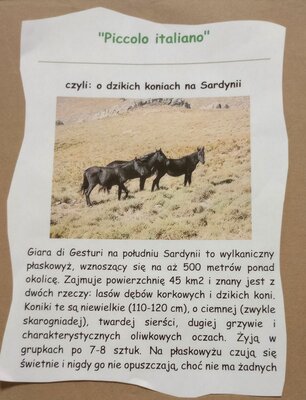 "Piccolo italiano"
czyli: o dzikich koniach na Sardynii
Giara di Gesturi na południu Sardynii to wylkaniczny
płaskowyż, wznoszący się na aż 500 metrów ponad
okolicę. Zajmuje powierzchnię 45 km2 i znany jest z
dwóch rzeczy: lasów dębów korkowych i dzikich koni.
Koniki te są niewielkie (110-120 cm), o ciemnej (zwykle
skarogniadej), twardej sierści, dugiej grzywie i
charakterystycznych oliwkowych oczach. Żyją w
grupkach po 7-8 sztuk. Na płaskowyżu czują się
świetnie i nigdy go nie opuszczają, choć nie ma żadnych